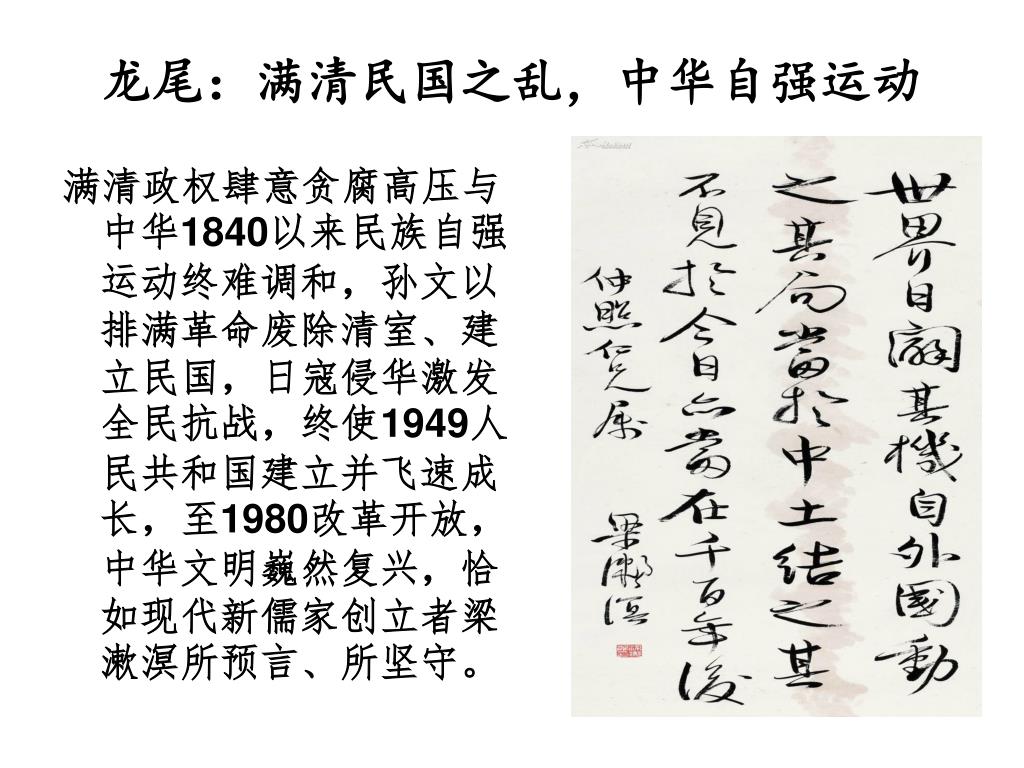 龙尾：满清民国之乱，中华自强运动
满清政权肆意贪腐高压与
中华1840以来民族自强
运动终难调和，孙文以
排满革命废除清室、建
立民国，日寇侵华激发
全民抗战，终使1949人
民共和国建立并飞速成
长，至1980改革开放，
中华文明巍然复兴，恰
如现代新儒家创立者梁
漱溟所预言、所坚守。
世界日闢其機自外國動
之其局當於中土結之其
不見於今日亦當在千百年後
仲照仁兄属
梁漱溟